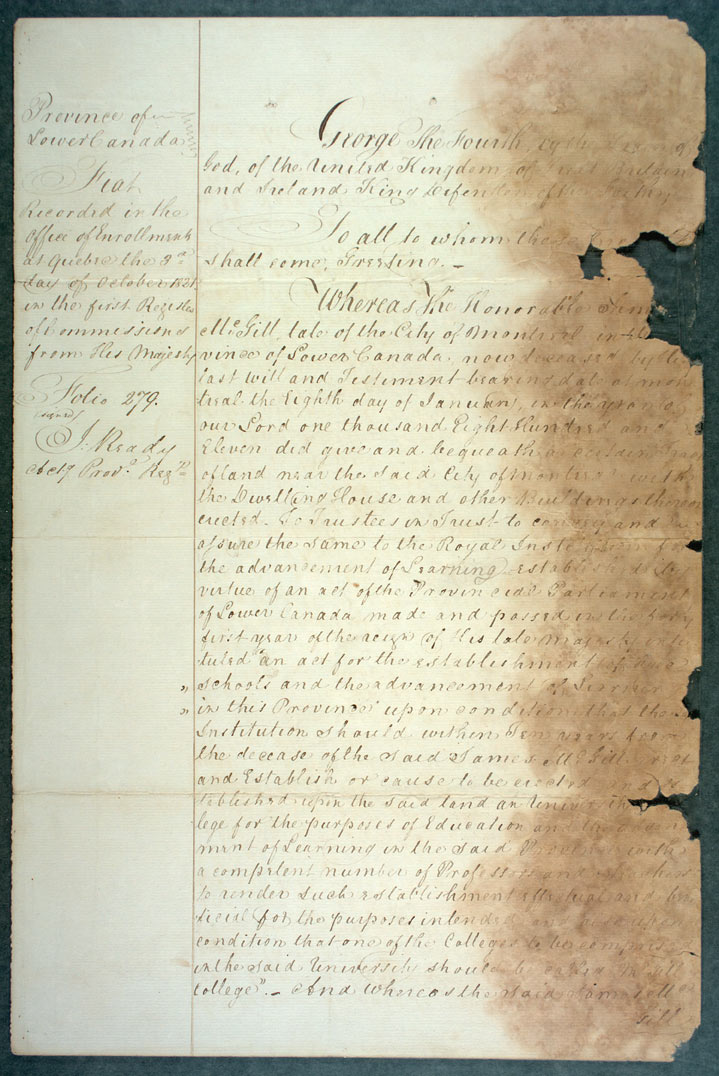 Province of
Lower Canada
Fiat
Recorded in the
Office of Enrollments
at Quebec the 3d
day of October 1821
in the first Register
of Commissions
from His Majesty
Folio 279.
(signed)
J: Ready
Regr
George The Fourth, by the
God, of the United Kingdom of Great Britain
and Ireland King Defender of the
To all to whom these
shall come, Greeting. —
Whereas The Honorable
McGill, late of the City of Montreal in
vince of Lower Canada. now deceased, by
last will and Testiment bearing date at mon
treal the Eighth day of January, in the year of
our Lord one thousand Eight Hundred and
Eleven did give and bequeath a certain
of land near the said City of Montreal with
the Dwelling House and other Buildings thereon
erected. To Trustees in Trust to convey and
assure the same to the Royal Institution for
the advancement of Learning established by
virtue of an act of the Provincial Parliament
of Lower Canada made and passed in the forty
first year of the reign of His late Majesty
tuled "an act for the establishment of free
" schools and the advancement of Learning
" in this Province" upon condition that the
Institution should within Ten years from
the decease of the said James McGill erect
and Establish or cause to be erected and
tablished upon the said land an
lege for the purposes of Education and the
ment of Learning in the said Province with
a competent number of Professors and Teachers
to render such establishment effectual and
ficial for the purposes intended and also upon
condition that one of the Colleges to be comprised
in the said University should be called McGill
College". — And whereas the said
Gill